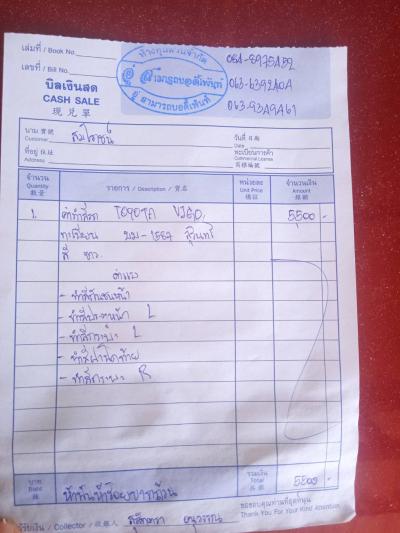 เล่มที่ / Book No.
เลขที่ / Bill No.
ห้างหุ้นส่วนจำกัด
อู่ สามารถบอดี้เพ้นท์
อู่ สามารถบอดี้เพ้นท์
บิลเงินสด
CASH SALE
現兌單
นาม 寶號
Customer
สมโภชน์
วันที่ 日期
Date
ที่อยู่ 住址
Address
ทะเบียนการค้า
Commercial License
商標編號
จำนวน
Quantity
數量
รายการ / Description / 貨名
หน่วยละ
Unit Price
價目
จำนวนเงิน
Amount
銀額
1. ค่าทำสีรถ TOYOTA VIGO 5500 -
ทะเบียน บม-1587 สุรินทร์
สี ขาว
- ทำสีกันชนหน้า
- ทำสีประตูหน้า L
- ทำสีกระบะ L
- ทำสีฝาปิดท้าย
- ทำสีกระบะ R
บาท
Baht
銖
ห้าพันห้าร้อยบาทถ้วน
รวมเงิน
Total
共銀
5500 -
ผู้รับเงิน / Collector / 收銀人
ขอขอบคุณท่านที่อุดหนุน
Thank You For Your Kind Attention